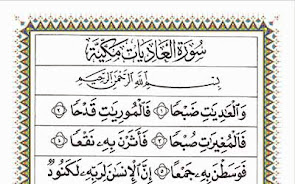 سورة العاديات مكية
بسم الله الرحمن الرحيم
وَالْعَٰدِيَٰتِ ضَبْحًا ١ فَالْمُورِيَٰتِ قَدْحًا ٢
فَالْمُغِيرَٰتِ صُبْحًا ٣ فَأَثَرْنَ بِهِۦ نَقْعًا ٤
فَوَسَطْنَ بِهِۦ جَمْعًا ٥ إِنَّ الْإِنسَٰنَ لِرَبِّهِۦ لَكَنُودٌ